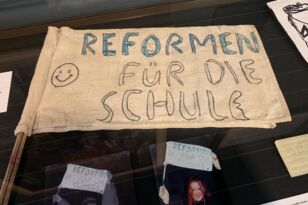 REFORMEN
FÜR DIE
SCHULE
REFORMEN
REFORMEN